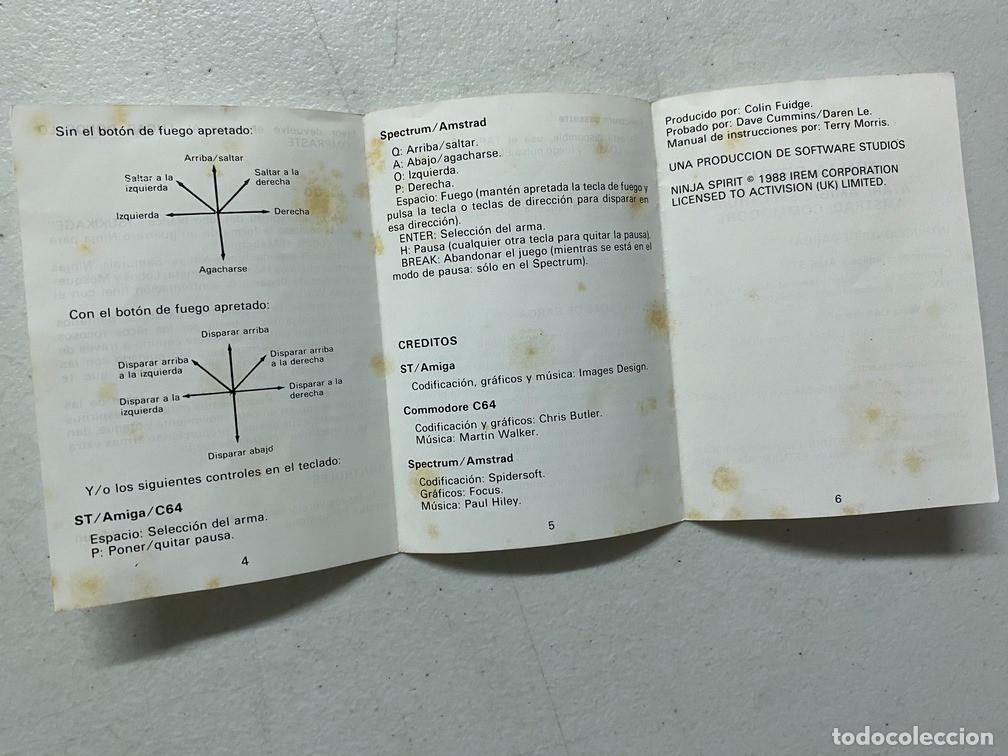 Sin el botón de fuego apretado:
Arriba/saltar
Saltar a la
izquierda
Saltar a la
derecha
Izquierda
Derecha
Agacharse
Con el botón de fuego apretado:
Disparar arriba
Disparar arriba
a la izquierda
Disparar arriba
a la derecha
Disparar a la
izquierda
Disparar a la
derecha
Disparar abajo
Y/o los siguientes controles en el teclado:
ST/Amiga/C64
Espacio: Selección del arma.
P: Poner/quitar pausa.
4
Spectrum/Amstrad
Q: Arriba/saltar.
A: Abajo/agacharse.
O: Izquierda.
P: Derecha.
Espacio: Fuego (mantén apretada la tecla de fuego y
pulsa la tecla o teclas de dirección para disparar en
esa dirección).
ENTER: Selección del arma.
H: Pausa (cualquier otra tecla para quitar la pausa).
BREAK: Abandonar el juego (mientras se está en el
modo de pausa: sólo en el Spectrum).
CREDITOS
ST/Amiga
Codificación, gráficos y música: Images Design.
Commodore C64
Codificación y gráficos: Chris Butler.
Música: Martin Walker.
Spectrum/Amstrad
Codificación: Spidersoft.
Gráficos: Focus.
Música: Paul Hiley.
5
Producido por: Colin Fuidge.
Probado por: Dave Cummins/Daren Le.
Manual de instrucciones por: Terry Morris.
UNA PRODUCCION DE SOFTWARE STUDIOS
NINJA SPIRIT © 1988 IREM CORPORATION
LICENSED TO ACTIVISION (UK) LIMITED.
6
todocoleccion